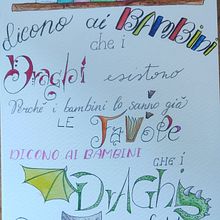 dicono ai BAMBINI
che i
Draghi esistono
Perché i bambini lo sanno già
LE FAVOLE
DICONO AI BAMBINI
CHE I
DRAGHI